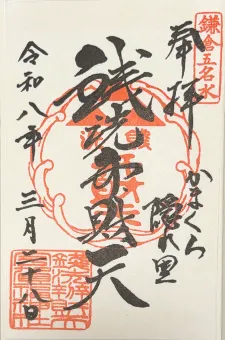 鎌倉五名水
奉拝
かまくら
隠れ里
銭洗弁財天
令和八年
三月二十八日